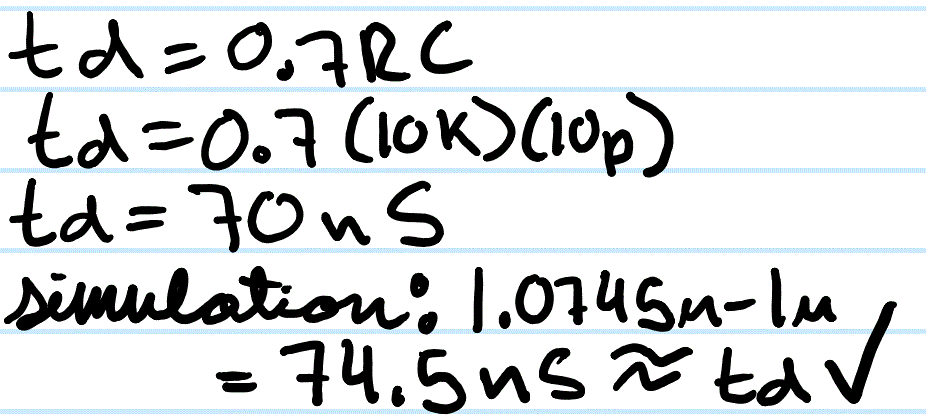 td = 0.7RC
td = 0.7 (10K)(10p)
td = 70nS
simulation: 1.0745u-1u
= 74.5nS ≈ td ✓